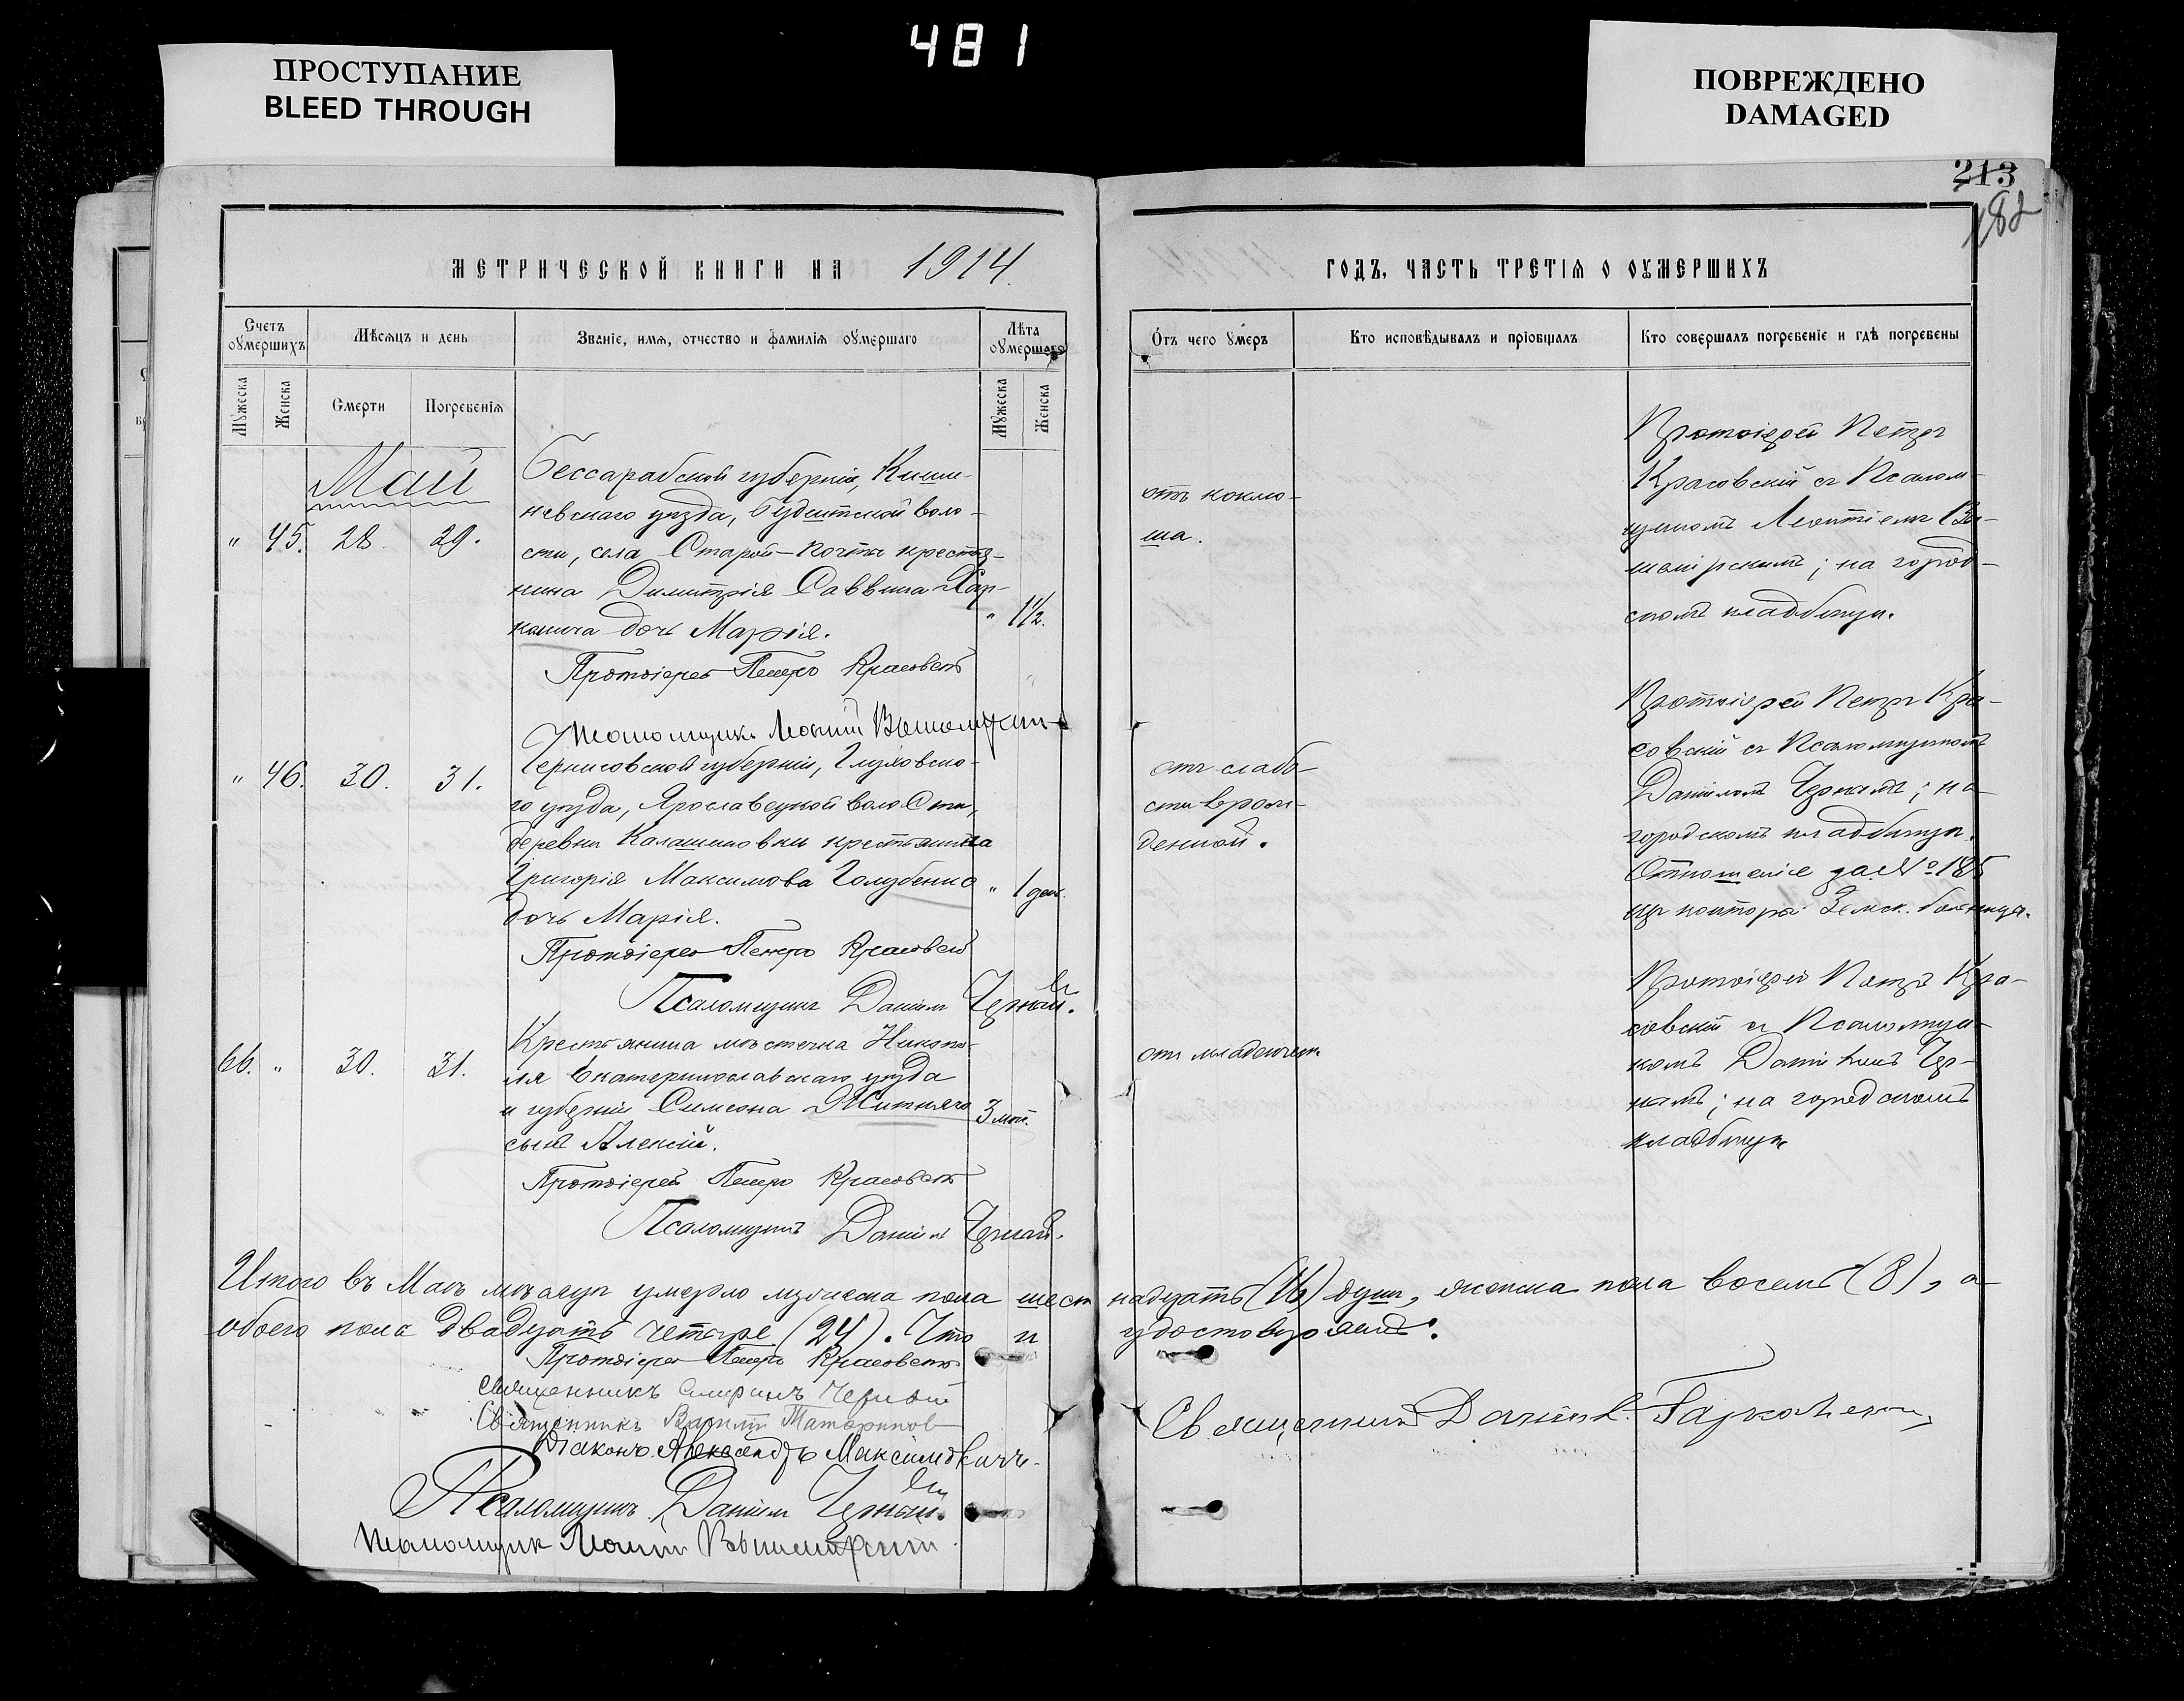 481
ПРОСТУПАНИЕ
BLEED THROUGH
ПОВРЕЖДЕНО
DAMAGED
213
182
МЕТРИЧЕСКОЙ КНИГИ НА 1914
ГОДЪ, ЧАСТЬ ТРЕТІЯ О ОУМЕРШИХЪ
Счетъ оумершихъ
Мѣсяцъ и день
Званіе, имя, отчество и фамилія оумершаго
Лѣта оумершаго
Отъ чего умеръ
Кто исповѣдывалъ и пріобщалъ
Кто совершалъ погребеніе и гдѣ погребены
Мужеска
Женска
Смерти
Погребенія
Мужеска
Женска
Май
" 45. 28. 29.
Бессарабской губерніи, Киши-
невскаго уѣзда, Будештской воло-
сти, села Старой-Почты крестья-
нина Димитрія Саввина
дочь Марія.
" 1½.
отъ коклю-
ша.
Протоіерей Петръ
Красовскій съ Псалом-
щикомъ Леонтіемъ Вы-
шемірскимъ; на город-
скомъ кладбищѣ.
Протоіерей Петръ Красовскій
Псаломщикъ Леонтій Вышемірскій
" 46. 30. 31.
Черниговской губерніи, Глуховска-
го уѣзда, Ярославецкой волости,
деревни Калашиновки крестьянина
Григорія Максимова Голубенко
дочь Марія.
" 1 день.
отъ слабо-
сти врож-
денной.
Протоіерей Петръ Кра-
совскій съ Псаломщикомъ
Даніиломъ Чернымъ; на
городскомъ кладбищѣ.
Отношеніе за № 185
изъ конторы Земск. больницы.
Протоіерей Петръ Красовскій
Псаломщикъ Даніилъ Черный.
66. " 30. 31.
Крестьянина мѣстечка Никопо-
ля Екатеринославскаго уѣзда
и губерніи Симеона Житняго
сынъ Алексій.
3 мѣс.
отъ младенческ.
Протоіерей Петръ Кра-
совскій съ Псаломщи-
комъ Даніиломъ Чер-
нымъ; на городскомъ
кладбищѣ
Протоіерей Петръ Красовскій
Псаломщикъ Даніилъ Черный.
Итого въ Маѣ мѣсяцѣ умерло мужеска пола шестнадцать (16) душъ, женска пола восемь (8), а
обоего пола двадцать четыре (24). Что и удостовѣряемъ.
Протоіерей Петръ Красовскій
Священникъ Черный
Священникъ Татариновъ
Діаконъ Александръ Максимовичъ
Священникъ Даніилъ
Псаломщикъ Даніилъ Черный.
Псаломщикъ Леонтій Вышемірскій